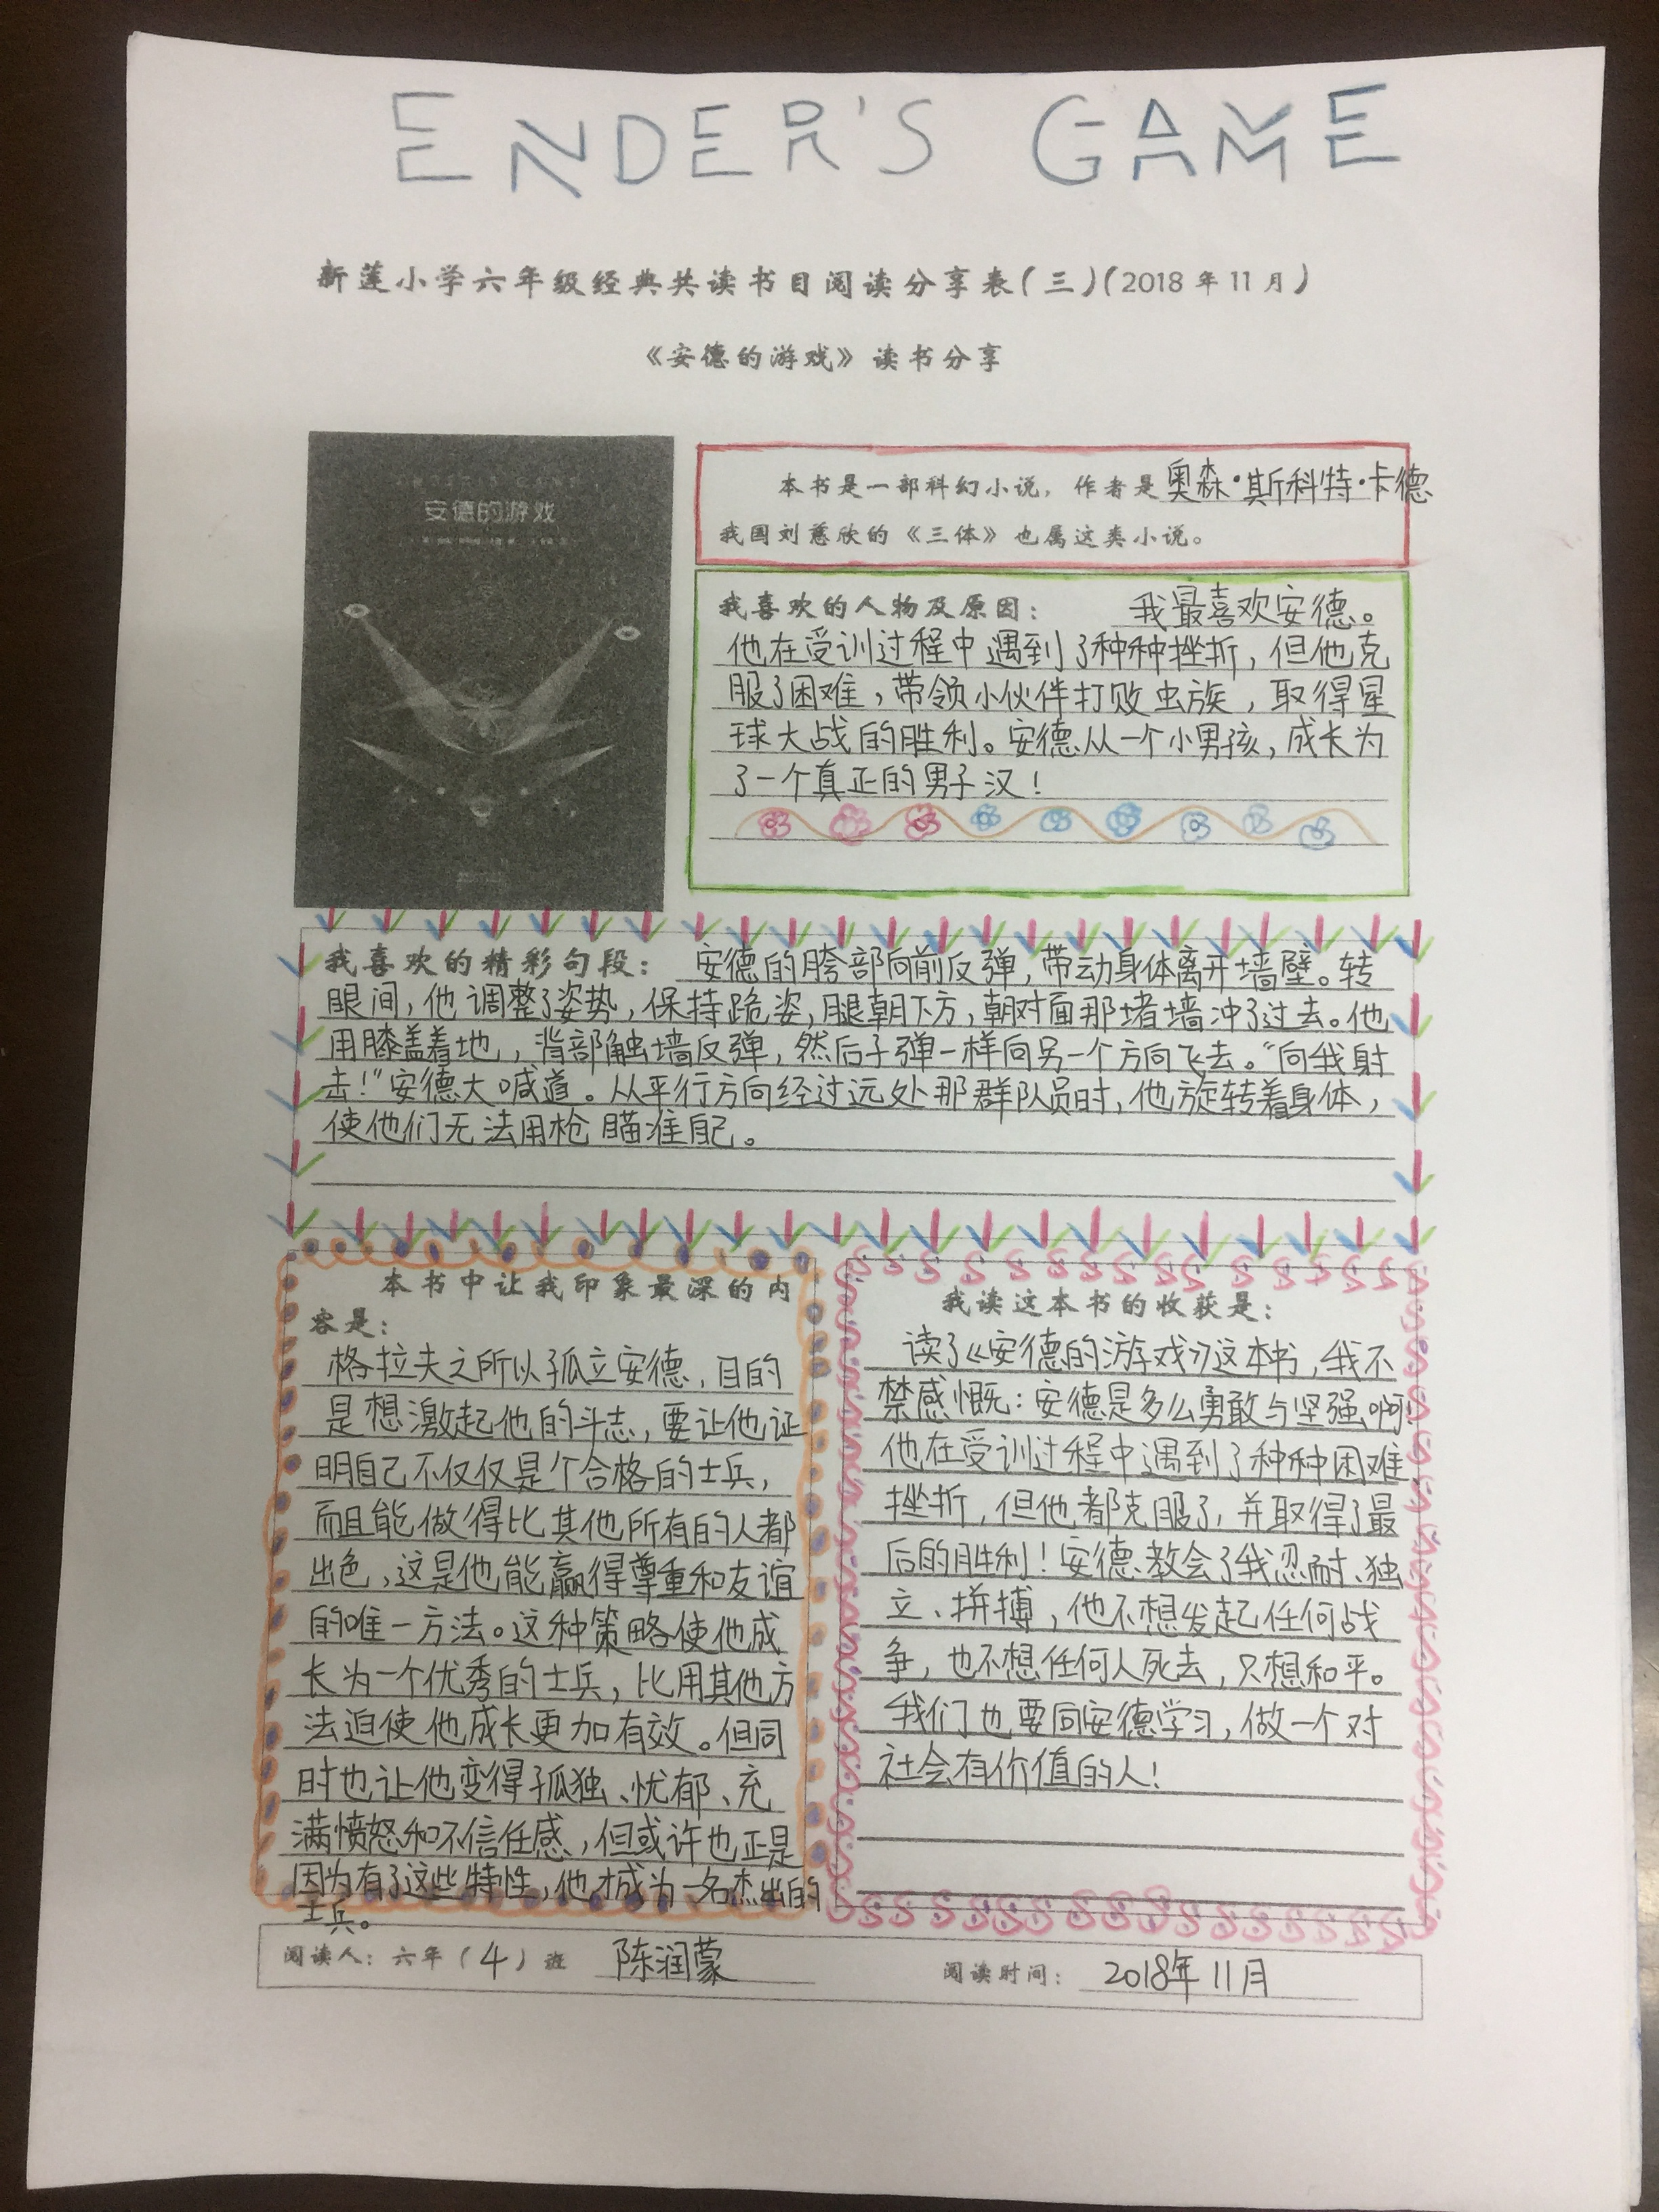 ENDER'S GAME
新莲小学六年级经典共读书目阅读分享表(三)(2018年11月)
《安德的游戏》读书分享
安德的游戏
本书是一部科幻小说,作者是奥森·斯科特·卡德
我国刘慈欣的《三体》也属这类小说。
我喜欢的人物及原因: 我最喜欢安德。
他在受训过程中遇到了种种挫折,但他克
服了困难,带领小伙伴打败虫族,取得星
球大战的胜利。安德从一个小男孩,成长为
了一个真正的男子汉!
我喜欢的精彩句段: 安德的胯部向前反弹,带动身体离开墙壁。转
眼间,他调整了姿势,保持跪姿,腿朝下方,朝对面那堵墙冲了过去。他
用膝盖着地,背部触墙反弹,然后子弹一样向另一个方向飞去。“向我射
击!”安德大喊道。从平行方向经过远处那群队员时,他旋转着身体,
使他们无法用枪瞄准自己。
本书中让我印象最深的内
容是:
格拉夫之所以孤立安德,目的
是想激起他的斗志,要让他证
明自己不仅仅是个合格的士兵,
而且能做得比其他所有的人都
出色,这是他能赢得尊重和友谊
的唯一方法。这种策略使他成
长为一个优秀的士兵,比用其他方
法迫使他成长更加有效。但同
时也让他变得孤独、忧郁、充
满愤怒和不信任感,但或许也正是
因为有了这些特性,他才成为一名杰出的
士兵。
我读这本书的收获是:
读了《安德的游戏》这本书,我不
禁感慨:安德是多么勇敢与坚强啊!
他在受训过程中遇到了种种困难、
挫折,但他都克服了,并取得了最
后的胜利!安德教会了我忍耐、独
立、拼搏,他不想发起任何战
争,也不想任何人死去,只想和平。
我们也要向安德学习,做一个对
社会有价值的人!
阅读人:六年(4)班 陈润蒙
阅读时间: 2018年11月